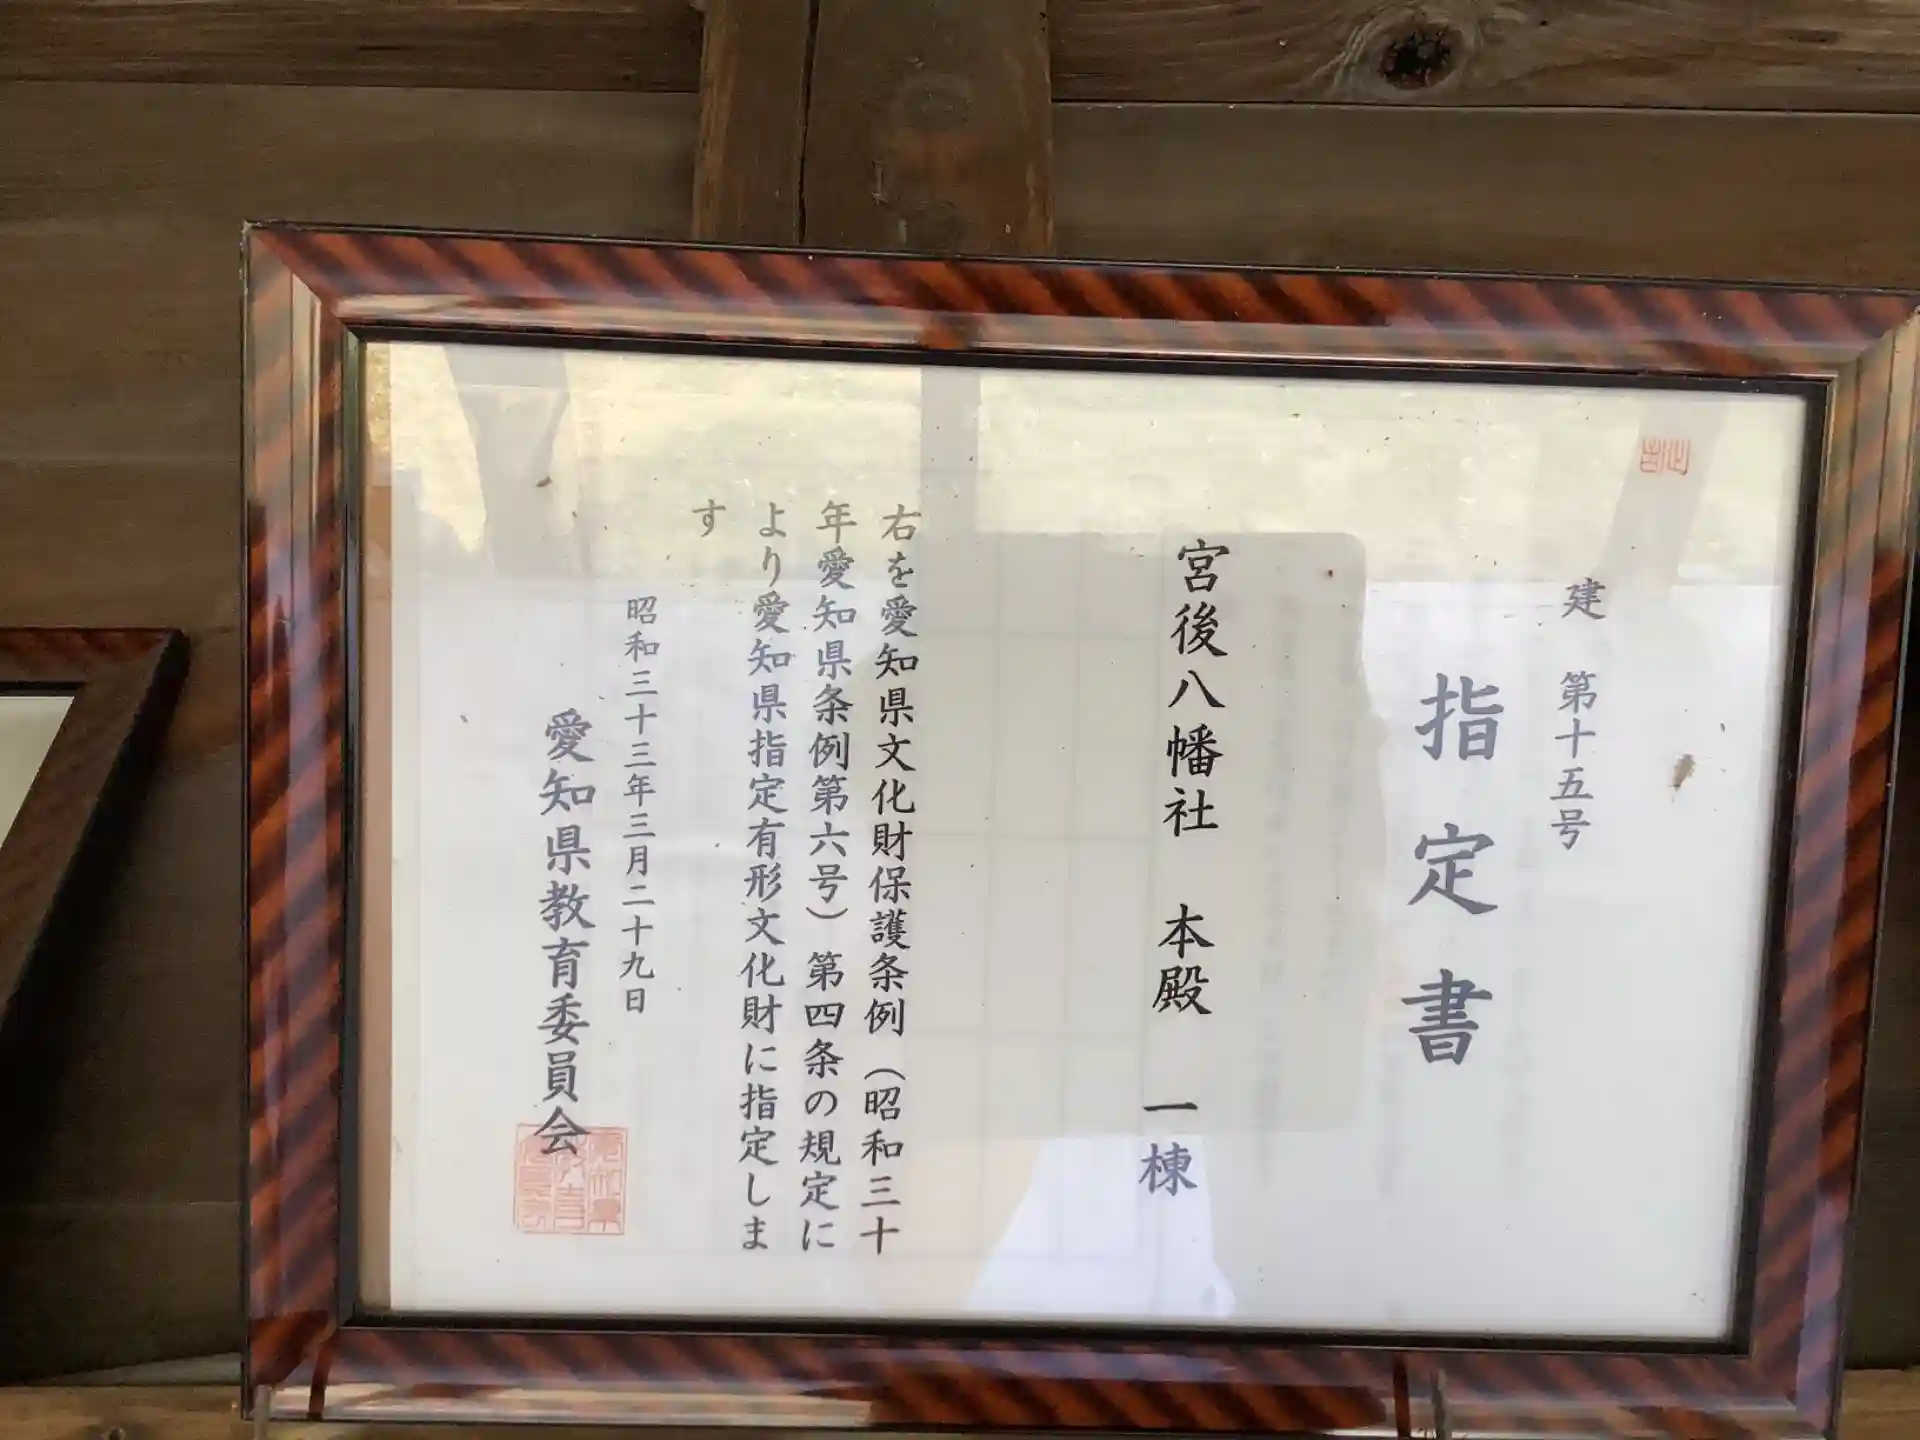 建 第十五号
指定書
宮後八幡社 本殿 一棟
右を愛知県文化財保護条例（昭和三十
年愛知県条例第六号）第四条の規定に
より愛知県指定有形文化財に指定しま
す
昭和三十三年三月二十九日
愛知県教育委員会